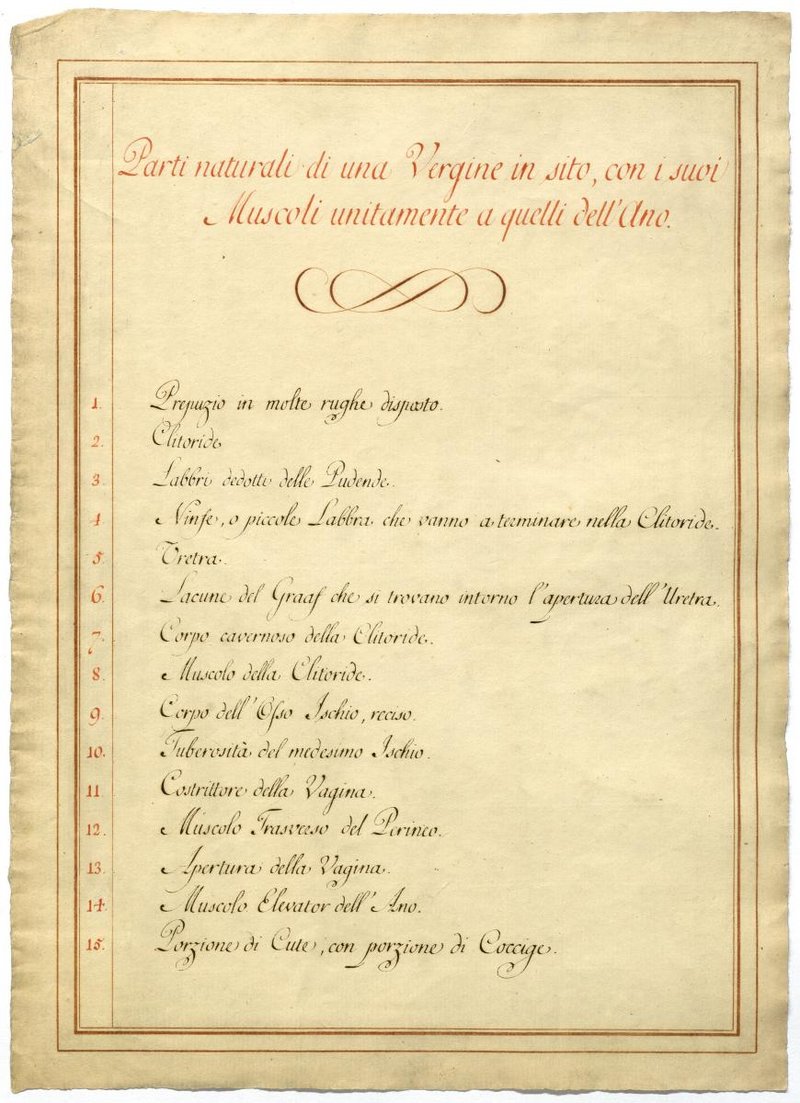 Parti naturali di una Vergine in sito, con i suoi
Muscoli unitamente a quelli dell'Ano.
1. Prepuzio in molte rughe disposto.
2. Clitoride
3. Labbri dedotti delle Pudende.
4 Ninfe, o piccole Labbra che vanno a terminare nella Clitoride.
5. Uretra.
6. Lacune del Graaf che si trovano intorno l'apertura dell'Uretra.
7. Corpo cavernoso della Clitoride.
8. Muscolo della Clitoride.
9. Corpo dell'Osso Ischio, reciso.
10. Tuberosità del medesimo Ischio.
11 Costrittore della Vagina.
12. Muscolo Trasverso del Perineo.
13. Apertura della Vagina.
14. Muscolo Elevator dell'Ano.
15. Porzione di Cute, con porzione di Coccige.